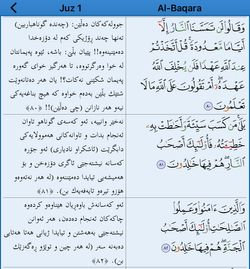 Juz 1
Al-Baqara
وَقَالُوا۟ لَن تَمَسَّنَا ٱلنَّارُ إِلَّآ
أَيَّامًا مَّعْدُودَةً قُلْ أَتَّخَذْتُمْ
عِندَ ٱللَّهِ عَهْدًا فَلَن يُخْلِفَ ٱللَّهُ
عَهْدَهُۥٓ أَمْ تَقُولُونَ عَلَى ٱللَّهِ مَا لَا
تَعْلَمُونَ ٨٠
جوولەکەکان دەڵێن: (چەندە گوناهباربین)
تەنها چەند ڕۆژێکی کەم لە دۆزەخدا
دەمێنینەوە!! پێیان بڵێ: باشە، ئێوە پەیمانتان
لە خوا وەرگرتووە، تا هەرگیز خوای گەورە
پەیمان شکێنی نەکات؟! یان هەر دەتانەوێت
شتێک بدەم خواوە کە هیچ بناغەیەکی
نیەو هەر نازانن (چی دەڵێن)!! (٨٠)
بَلَىٰ مَن كَسَبَ سَيِّئَةً وَأَحَٰطَتْ بِهِۦ
خَطِيٓـَٔتُهُۥ فَأُو۟لَٰٓئِكَ أَصْحَٰبُ
ٱلنَّارِ هُمْ فِيهَا خَٰلِدُونَ ٨١
نەخێر وانییە، ئەو کەسەی گوناهو تاوان
ئەنجام بدات و تاوانەکانی هەموولایەکی
دابگرێت (ئاشکراو نادیاری) ئەو جۆرە
کەسانە نیشتەجێی ئاگری دۆزەخن و بۆ
هەمیشەیی تیایدا دەمێننەوە (لە هەر نەتەوەو
هۆزو تیرەو تایەفەیەک بن). (٨١)
وَٱلَّذِينَ ءَامَنُوا۟ وَعَمِلُوا۟
ٱلصَّٰلِحَٰتِ أُو۟لَٰٓئِكَ أَصْحَٰبُ
ٱلْجَنَّةِ هُمْ فِيهَا خَٰلِدُونَ ٨٢
ئەو کەسانەش باوەڕیان هێناوەو کردەوە
چاکەکان ئەنجام دەدەن، هەر ئەوانن
نیشتەجێی بەهەشتن و تیایدا ژیانی هەتا هەتایی
دەبەنە سەر (لە هەر چین و توێژو ڕەگەزێک
بن). (٨٢)